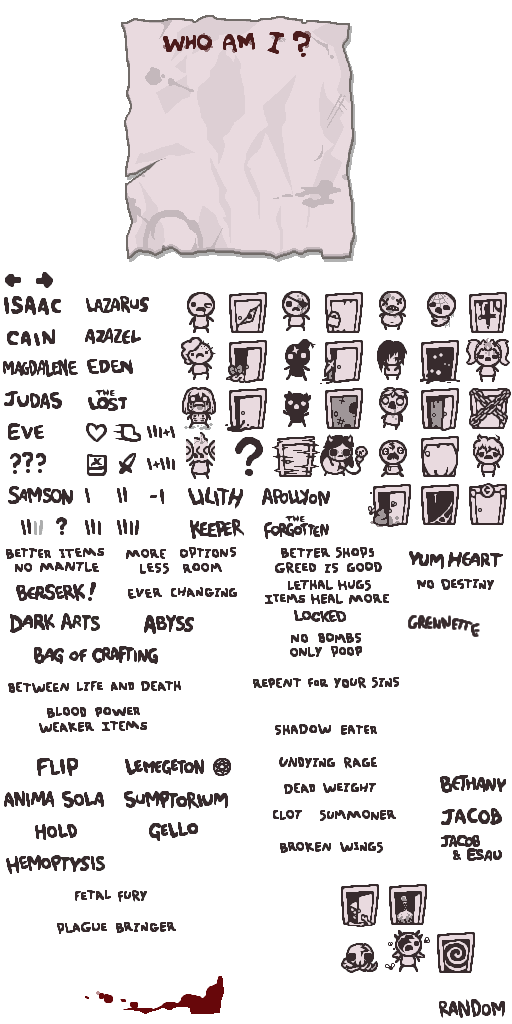 WHO AM I ?
ISAAC LAZARUS
CAIN AZAZEL
MAGDALENE EDEN
JUDAS THE LOST
EVE |||+|
??? |+|||
?
SAMSON | || -| LILITH APOLLYON
|||| ? ||| |||| KEEPER THE FORGOTTEN
BETTER ITEMS
NO MANTLE
MORE OPTIONS
LESS ROOM
BETTER SHOPS
GREED IS GOOD
YUM HEART
BERSERK!
EVER CHANGING
LETHAL HUGS
ITEMS HEAL MORE
NO DESTINY
DARK ARTS
ABYSS
LOCKED
GRENNETTE
NO BOMBS
ONLY POOP
BAG OF CRAFTING
BETWEEN LIFE AND DEATH
REPENT FOR YOUR SINS
BLOOD POWER
WEAKER ITEMS
SHADOW EATER
FLIP
LEMEGETON
UNDYING RAGE
DEAD WEIGHT
BETHANY
ANIMA SOLA
SUMPTORIUM
CLOT SUMMONER
JACOB
HOLD
GELLO
BROKEN WINGS
JACOB
& ESAU
HEMOPTYSIS
FETAL FURY
PLAGUE BRINGER
RANDOM